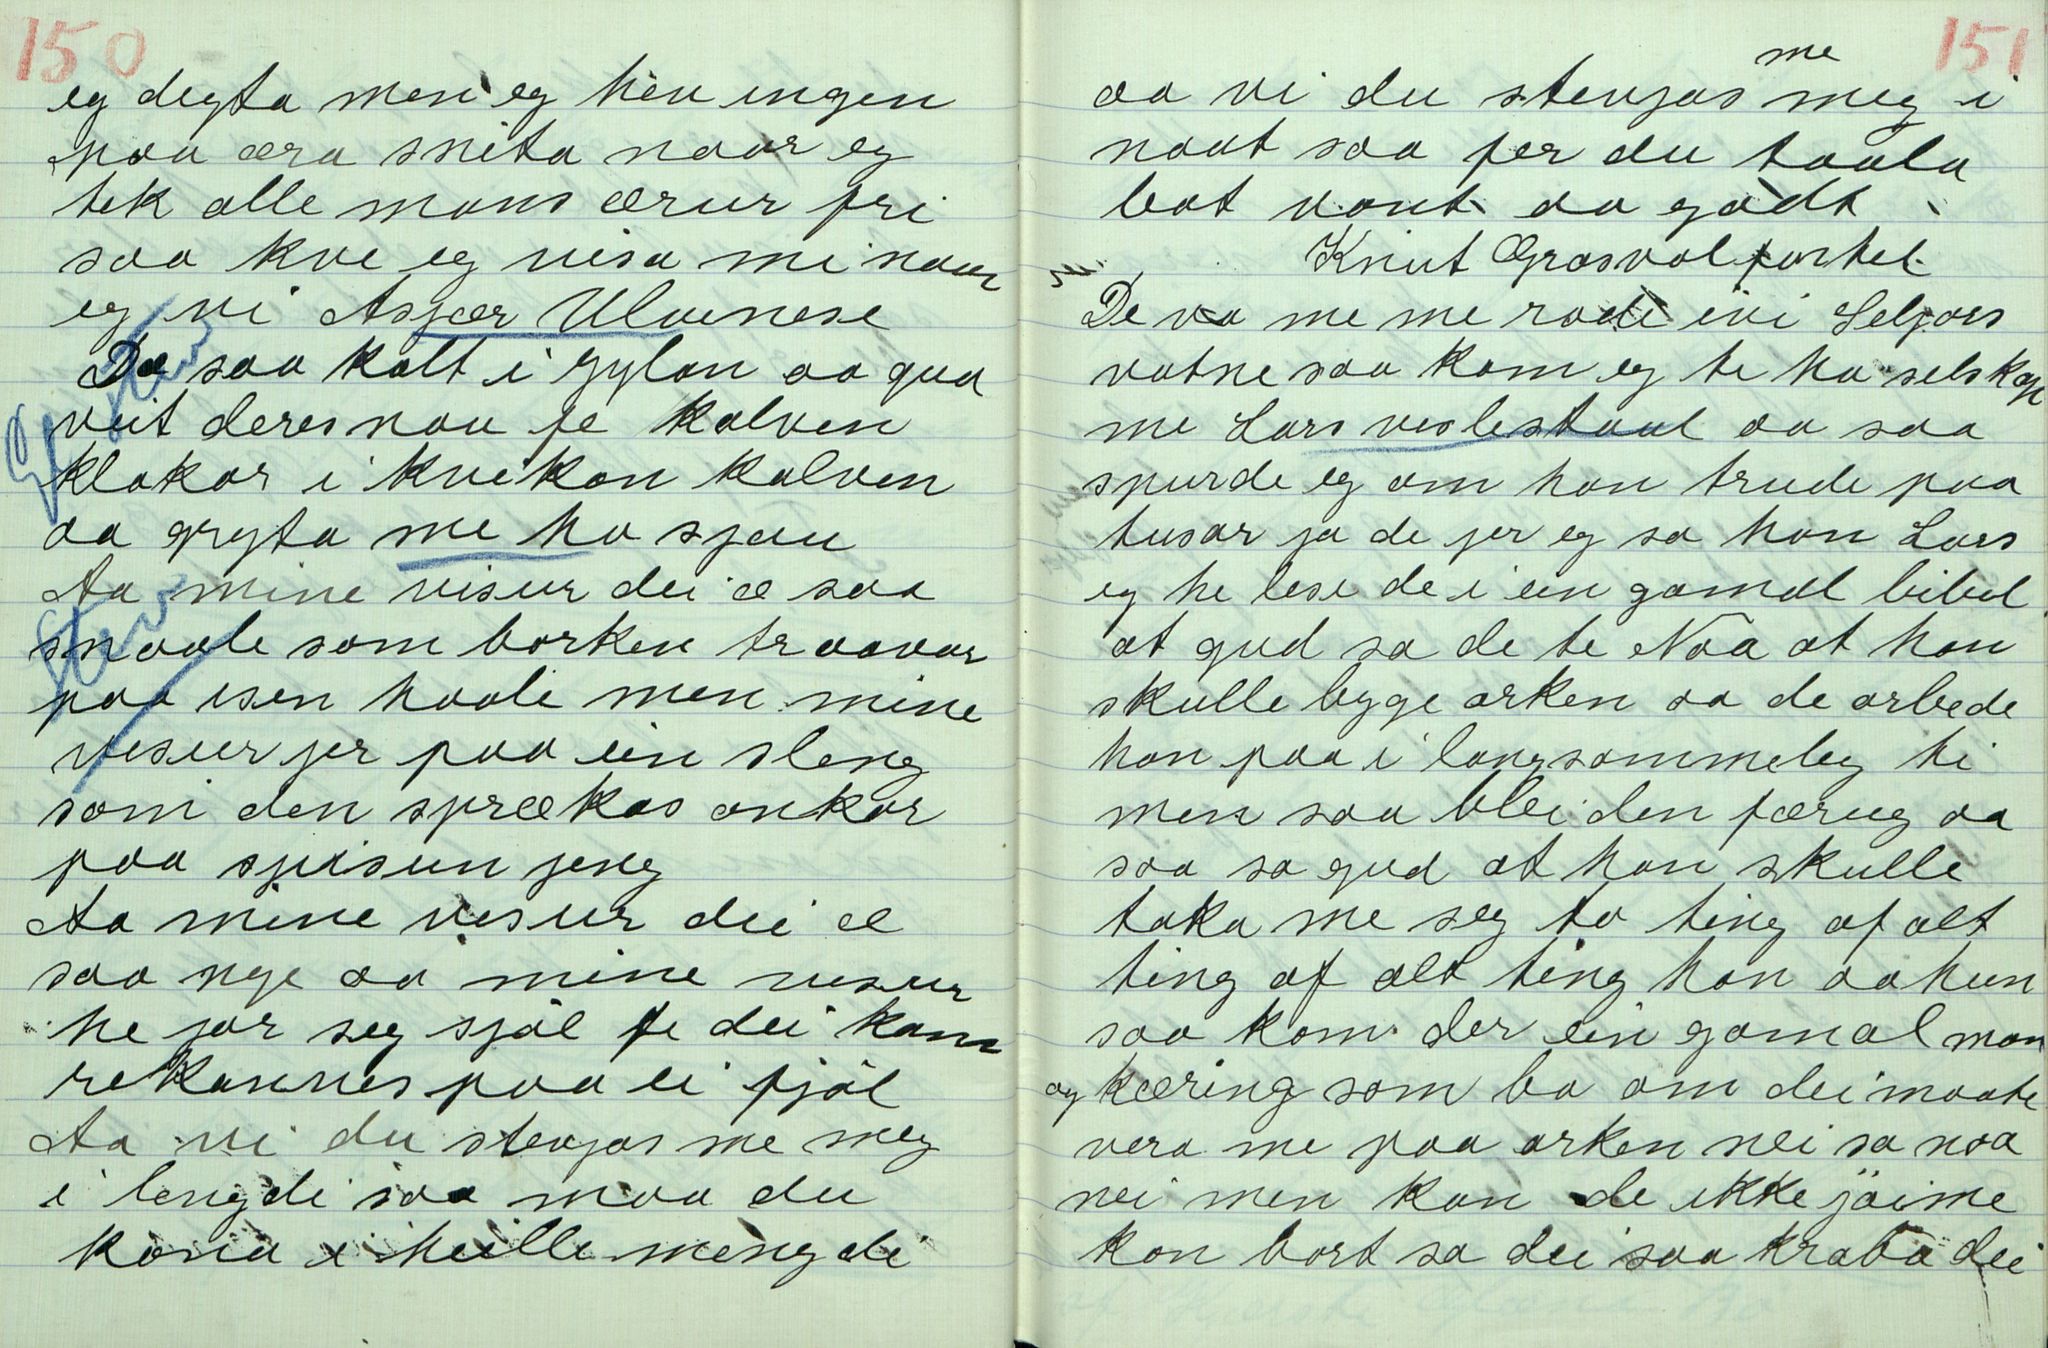 150
eg degta men eg hev ingen
paa æra snita naar eg
tek alle mans ærur fri
saa kve eg visa mi naar
eg vi Asjær Ulvenese
Da saa kalt i gylan aa gud
veit deres naa fe kalven
klakar i kveikan kalven
aa gryta me ha sjau
Aa mine visur dei æ saa
snaale som borken traavar
paa isen haale men mine
visur jer paa ein sleng
som den sprækas ankar
paa spisun jeng
Aa mine visur dei æ
saa nye aa mine visur
he jar seg sjøl fe dei kann
rekannes paa ei fjøl
Aa vi du stevjas me meg
i lengdi saa maa du
koma i heille mengde
151
aa vi du stevjas me meg i
naat saa fer du taala
bat vont aa godt
Knut Grasvol fortel
De va me me rode ivi Seljors
vatne saa kom eg te ha selskap
me Lars veslestaul aa saa
spurde eg om han trude paa
tusar ja de jer eg sa han Lars
eg he lese de i ein gamal bibel
at gud sa de te Noa at han
skulle byge arken aa de arbede
han paa i langsommeleg ti
men saa blei den færug aa
saa sa gud at han skulle
taka me seg to ting af alt
ting af alt ting han aa hun
saa kom der ein gamal man
og kæring som ba om dei maate
vera me paa arken nei sa noa
nei men kan de ikke jøime
kon bort sa dei saa kraba dei